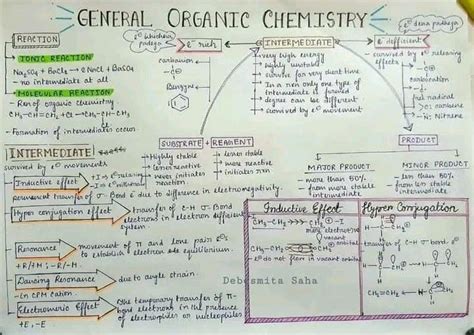 GENERAL ORGANIC CHEMISTRY
REACTION
IONIC REACTION
Na₂SO₄ + BaCl₂ → NaCl + BaSO₄
no intermediate at all
MOLECULAR REACTION
- Rxn of organic chemistry
- Formation of intermediates occur
e⊖ rich
carbanion
Benzyne
INTERMEDIATE
very high energy
highly unstable
survive for very short time
In a rxn only one type of
intermediate is formed
degree can be different
survived by e⊖ movement
e⊖ defficient
survived by e⊖ releasing
effects
carbocation
free radical
carbene
Nitrene
SUBSTRATE + REAGENT
Highly stable
less reactive
never initiates
reaction
lesser stable
more reactive
initiates rxn
PRODUCT
MAJOR PRODUCT
- more than 50%
- from more stable
intermediate
MINOR PRODUCT
- less than 50%
- from less stable
intermediate
INTERMEDIATE
survived by e⊖ movements
Inductive effect
permanent transfer of σ- Bond e⊖ due to difference in electronegativity.
Hyper conjugation effect
transfer of C-H σ- Bond
electrons in different
system.
Resonance
movement of π and lone pair e⊖s
to establish electronic effect.
+R/+M ; -R/-M.
Dancing Resonance
due to angle strain
- in CPM cation
Electromeric Effect
the temporary transfer of π-
bond electrons in the presence
of electrophiles or nucleophiles
+E, -E
Inductive Effect
vacant
orbital
e⊖ do not flow in vacant orbital
Hyper Conjugation
transfer of C-H σ- bond e⊖
Debesmita Saha